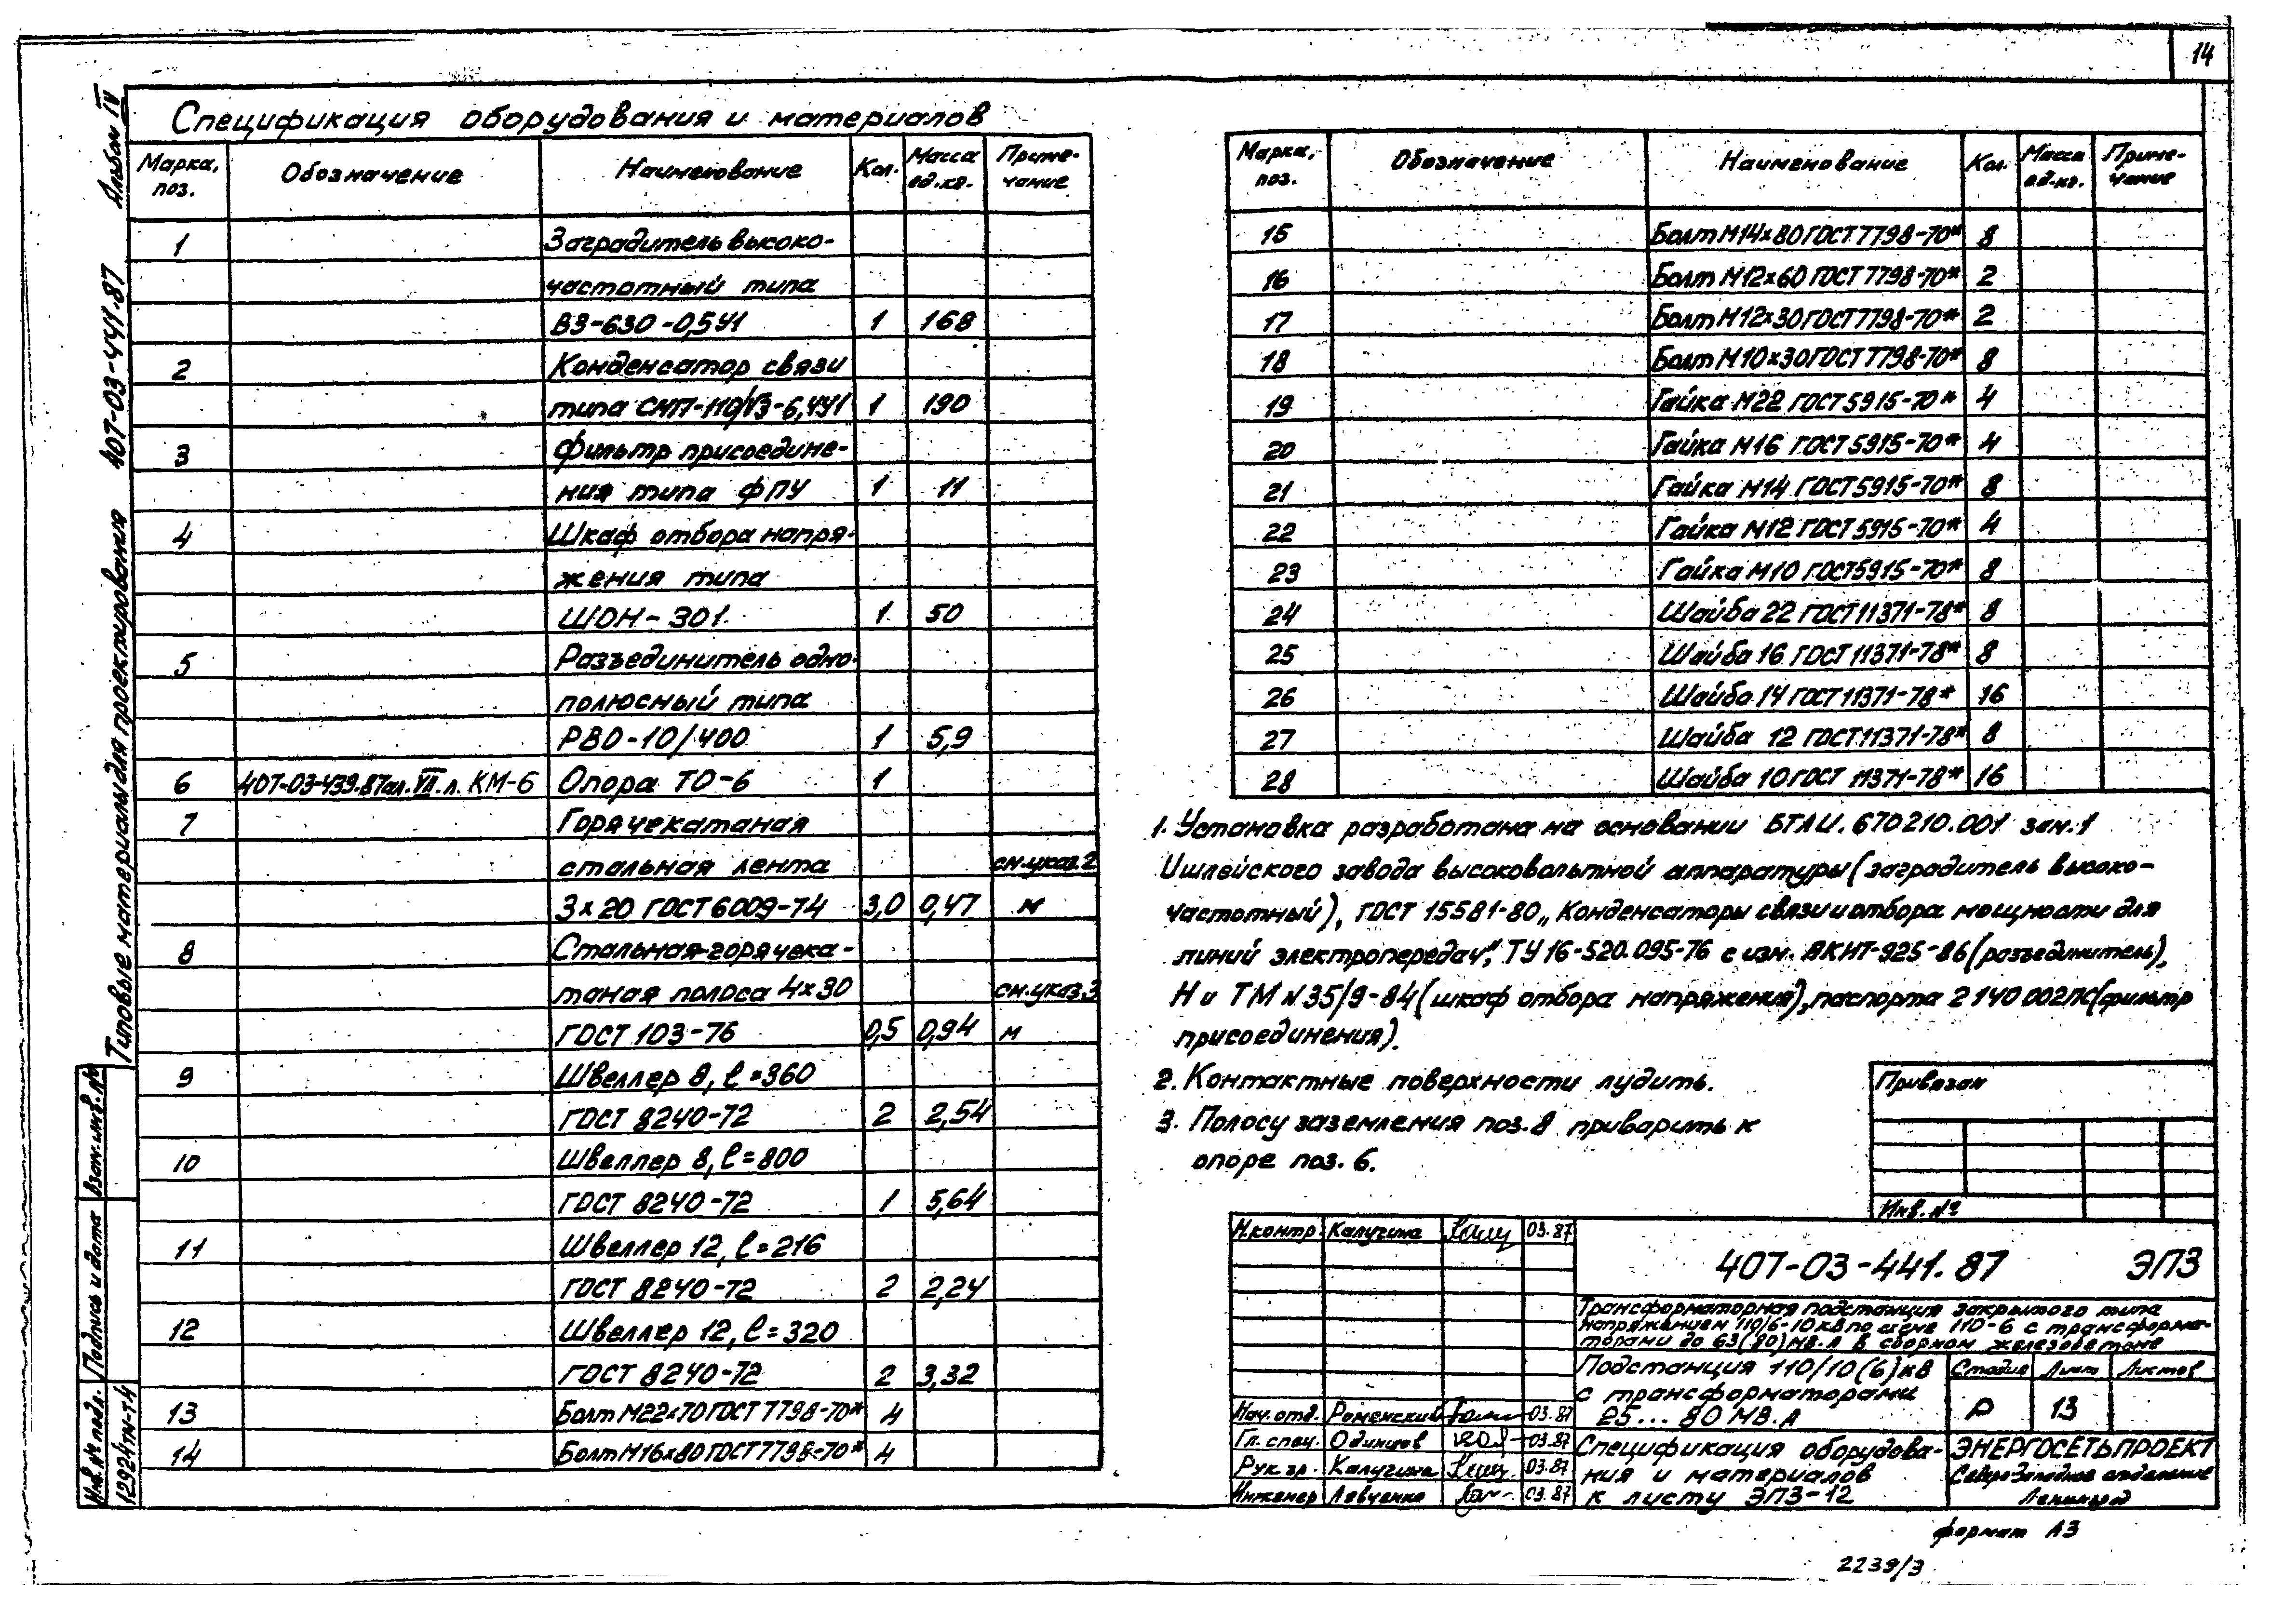 14
Альбом IV
407-03-441.87
Типовые материалы для проектирования
Взам.инв.№
Подпись и дата
Инв.№ подл.
12924тм-т4
Спецификация оборудования и материалов
Марка, поз. Обозначение Наименование Кол. Масса ед.кг. Приме-чание
1 Заградитель высоко-
частотный типа
ВЗ-630-0,5У1 1 168
2 Конденсатор связи
типа СМП-110/√3-6,4У1 1 190
3 Фильтр присоедине-
ния типа ФПУ 1 11
4 Шкаф отбора напря-
жения типа
ШОН-301 1 50
5 Разъединитель одно-
полюсный типа
РВО-10/400 1 5,9
6 407-03-439.87 ал. VII. л. КМ-6 Опора ТО-6 1
7 Горячекатаная
стальная лента см.указ.2
3х20 ГОСТ 6009-74 3,0 0,47 м
8 Стальная горячека-
таная полоса 4х30 см.указ.3
ГОСТ 103-76 0,5 0,94 м
9 Швеллер 8, ℓ=360
ГОСТ 8240-72 2 2,54
10 Швеллер 8, ℓ=800
ГОСТ 8240-72 1 5,64
11 Швеллер 12, ℓ=216
ГОСТ 8240-72 2 2,24
12 Швеллер 12, ℓ=320
ГОСТ 8240-72 2 3,32
13 Болт М22х70 ГОСТ 7798-70* 4
14 Болт М16х80 ГОСТ 7798-70* 4
Марка, поз. Обозначение Наименование Кол. Масса ед.кг. Приме-чание
15 Болт М14х80 ГОСТ 7798-70* 8
16 Болт М12х60 ГОСТ 7798-70* 2
17 Болт М12х30 ГОСТ 7798-70* 2
18 Болт М10х30 ГОСТ 7798-70* 8
19 Гайка М22 ГОСТ 5915-70* 4
20 Гайка М16 ГОСТ 5915-70* 4
21 Гайка М14 ГОСТ 5915-70* 8
22 Гайка М12 ГОСТ 5915-70* 4
23 Гайка М10 ГОСТ 5915-70* 8
24 Шайба 22 ГОСТ 11371-78* 8
25 Шайба 16 ГОСТ 11371-78* 8
26 Шайба 14 ГОСТ 11371-78* 16
27 Шайба 12 ГОСТ 11371-78* 8
28 Шайба 10 ГОСТ 11371-78* 16
1. Установка разработана на основании БТЛИ.670210.001 зам.1
Ишлейского завода высоковольтной аппаратуры (заградитель высоко-
частотный), ГОСТ 15581-80 „Конденсаторы связи и отбора мощности для
линий электропередач", ТУ 16-520.095-76 с изм. ЯКНТ-925-86 (разъединитель),
Н и ТМ №35/9-84 (шкаф отбора напряжения), паспорта 2140.002ПС (фильтр
присоединения).
2. Контактные поверхности лудить.
3. Полосу заземления поз.8 приварить к
опоре поз. 6.
Привязан
Инв.№
Н.контр Калугина 03.87
Нач.отд. Роменский 03.87
Гл.спец. Одинцов 03.87
Рук.гр. Калугина 03.87
Инженер Левченко 03.87
407-03-441.87 ЭПЗ
Трансформаторная подстанция закрытого типа
напряжением 110/6-10кВ по схеме 110-6 с трансформа-
торами до 63(80)МВ.А в сборном железобетоне
Подстанция 110/10(6)кВ
с трансформаторами
25...80 МВ.А
Стадия Лист Листов
Р 13
Спецификация оборудова-
ния и материалов
к листу ЭПЗ-12
ЭНЕРГОСЕТЬПРОЕКТ
Северо-Западное отделение
Ленинград
формат А3
2239/3